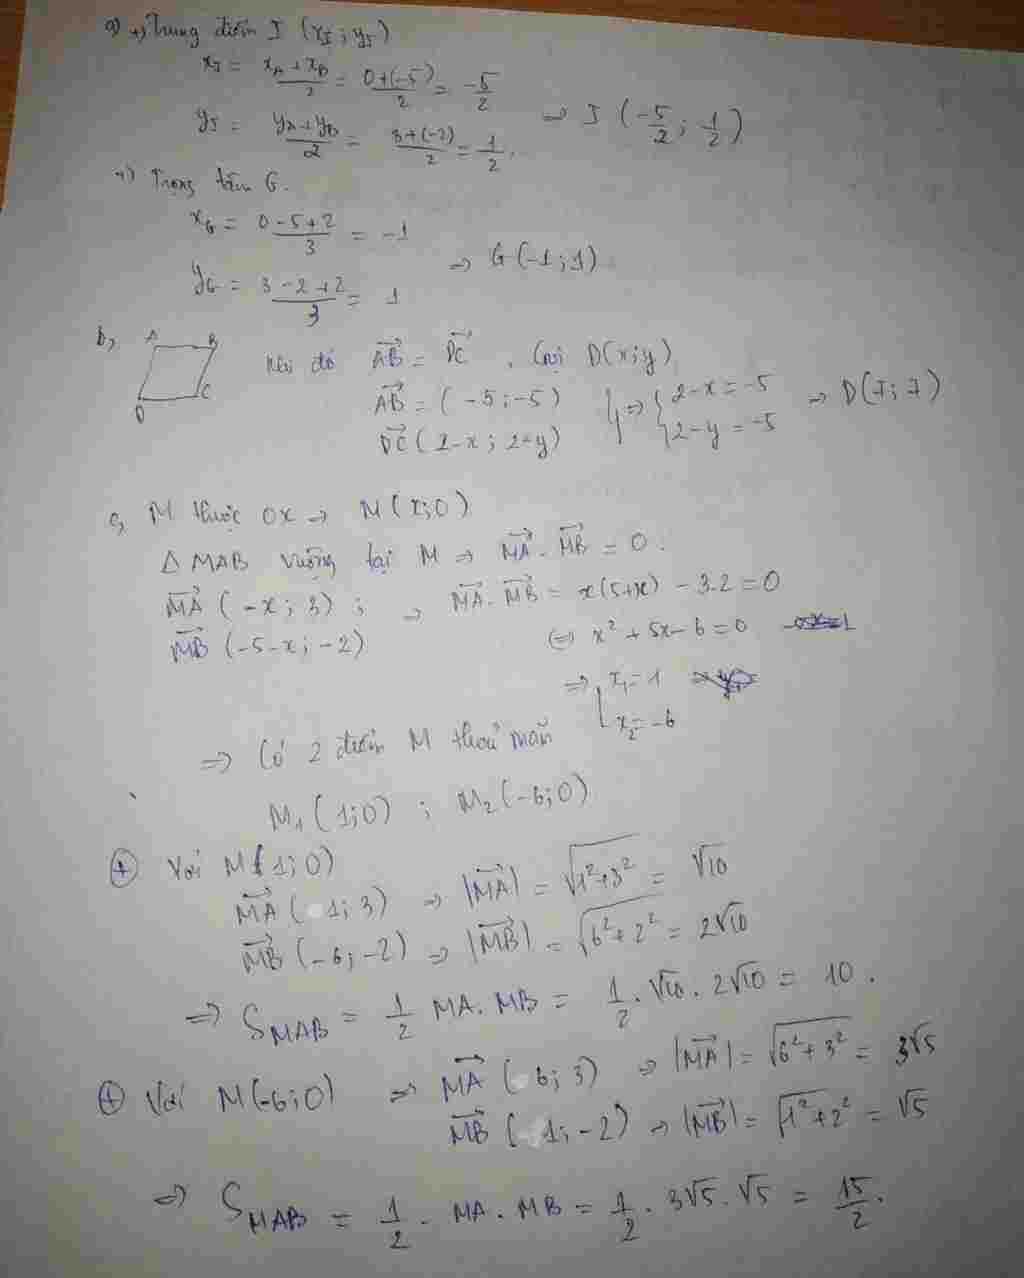 a) +) Trung điểm I (x_I ; y_I)
x_I = (x_A + x_B)/2 = (0+(-5))/2 = -5/2
y_I = (y_A + y_B)/2 = (3+(-2))/2 = 1/2. => I (-5/2 ; 1/2)
+) Trọng tâm G.
x_G = (0-5+2)/3 = -1
y_G = (3-2+2)/3 = 1 => G(-1;1)
b, A B C D
Khi đó \overrightarrow{AB} = \overrightarrow{DC}. Gọi D(x;y)
\overrightarrow{AB} = (-5;-5)
\overrightarrow{DC} (2-x; 2-y) } => { 2-x = -5
2-y = -5 => D(7;7)
c, M thuộc Ox => M(x;0)
Δ MAB vuông tại M => \overrightarrow{MA} . \overrightarrow{MB} = 0.
\overrightarrow{MA} (-x; 3) ; => \overrightarrow{MA}.\overrightarrow{MB} = x(5+x) - 3.2 = 0
\overrightarrow{MB} (-5-x; -2) <=> x² + 5x - 6 = 0
=> [ x_1 = 1
x_2 = -6
=> Có 2 điểm M thoả mãn
M_1 (1;0) ; M_2 (-6;0)
(+) Với M(1;0)
\overrightarrow{MA} (1;3) => |\overrightarrow{MA}| = √(1²+3²) = √10
\overrightarrow{MB} (-6;-2) => |\overrightarrow{MB}| = √(6²+2²) = 2√10
=> S_{MAB} = 1/2 MA.MB = 1/2 . √10 . 2√10 = 10.
(+) Với M(-6;0) => \overrightarrow{MA} (6;3) => |\overrightarrow{MA}| = √(6²+3²) = 3√5
\overrightarrow{MB} (1;-2) => |\overrightarrow{MB}| = √(1²+2²) = √5
=> S_{MAB} = 1/2 . MA.MB = 1/2 . 3√5 . √5 = 15/2.